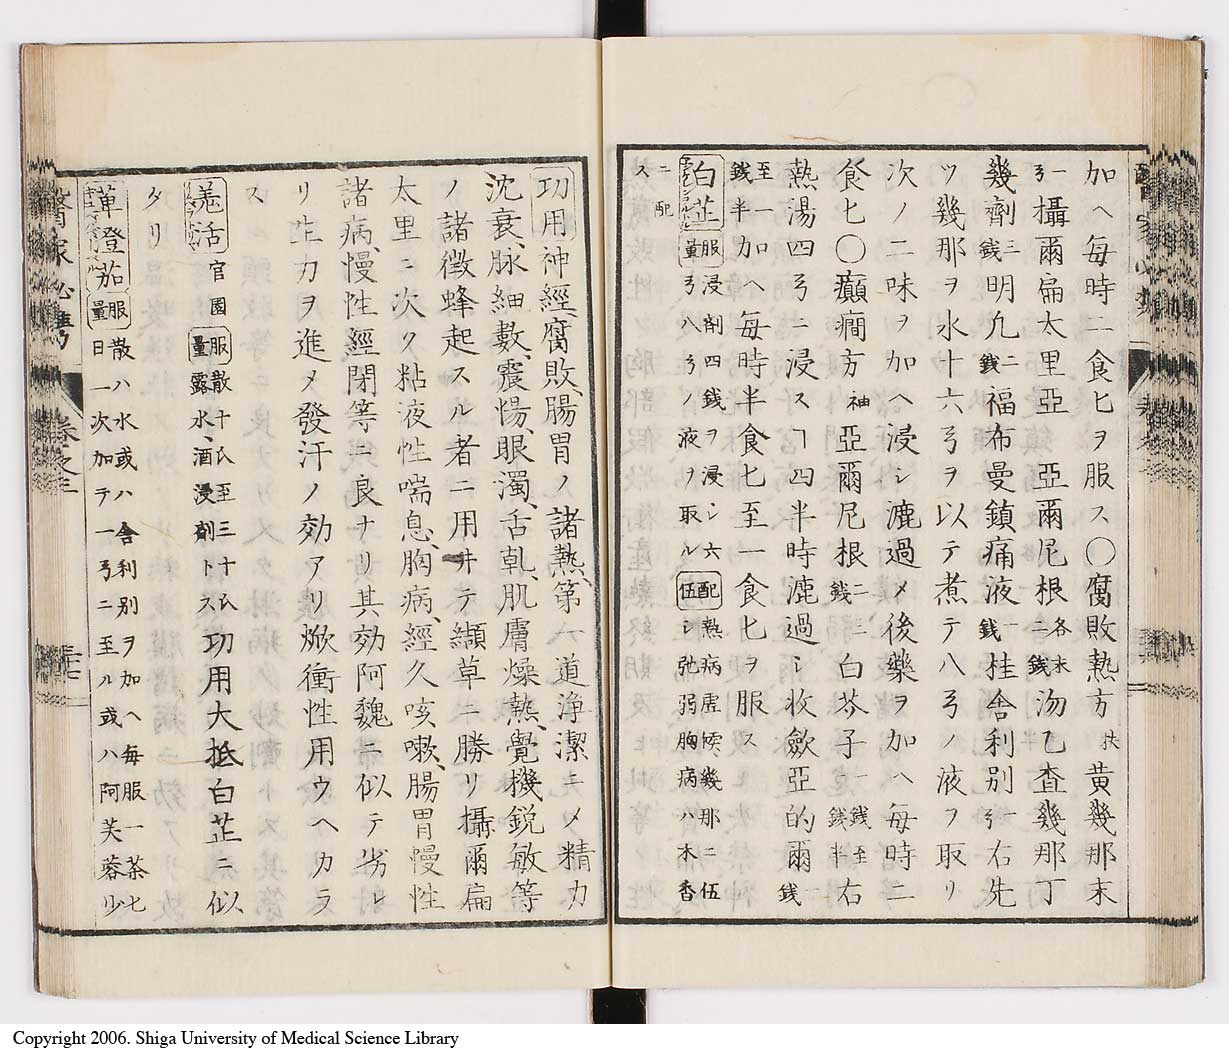 加ヘ毎時二食匕ヲ服ス〇腐敗熱方扶黄幾那末
一弓攝爾扁太里亞 亞爾尼根各末二銭汤乙査幾那丁
幾劑三銭明礬二銭福布曼鎮痛液一銭桂舎利別一弓右先
ツ幾那ヲ水十六弓ヲ以テ煮テ八弓ノ液ヲ取リ
次ノ二味ヲ加ヘ浸シ漉過メ後藥ヲ加ヘ毎時二
食匕〇癲癇方袖亞爾尼根二銭三白芥子一銭至銭半右
熱湯四弓ニ浸スヿ四半時漉過シ收歛亞的爾一銭
至一銭半加ヘ毎時半食匕至一食匕ヲ服ス
白芷 服量 浸劑四銭ヲ浸シ六弓八弓ノ液ヲ取ル 配伍 熱病虚候、幾那ニ伍シ弛弱胸病ハ木香
ニ配ス
功用神經腐敗、腸胃ノ諸熱、第一道淨潔ニメ精力
沈衰、脉細數、震惕、眼濁、舌乹、肌膚燥熱、覺機鋭敏等
ノ諸徴蜂起スル者ニ用井テ纈草ニ勝リ攝爾扁
太里ニ次ク粘液性喘息、胸病、經久咳嗽、腸胃慢性
諸病、慢性經閉等ニ良ナリ其効阿魏ニ似テ劣レ
リ生力ヲ進メ發汗ノ効アリ焮衝性用ウヘカラ
ス
羗活 官園 服量 散十氏至三十氏露水、酒浸劑トス功用大抵白芷ニ似
タリ
蓽澄茄 服量 散ハ水或ハ舎利別ヲ加ヘ毎服一茶匕日一次加テ一弓ニ至ル或ハ阿芙蓉少
醫家必携 巻之三
Copyright 2006. Shiga University of Medical Science Library